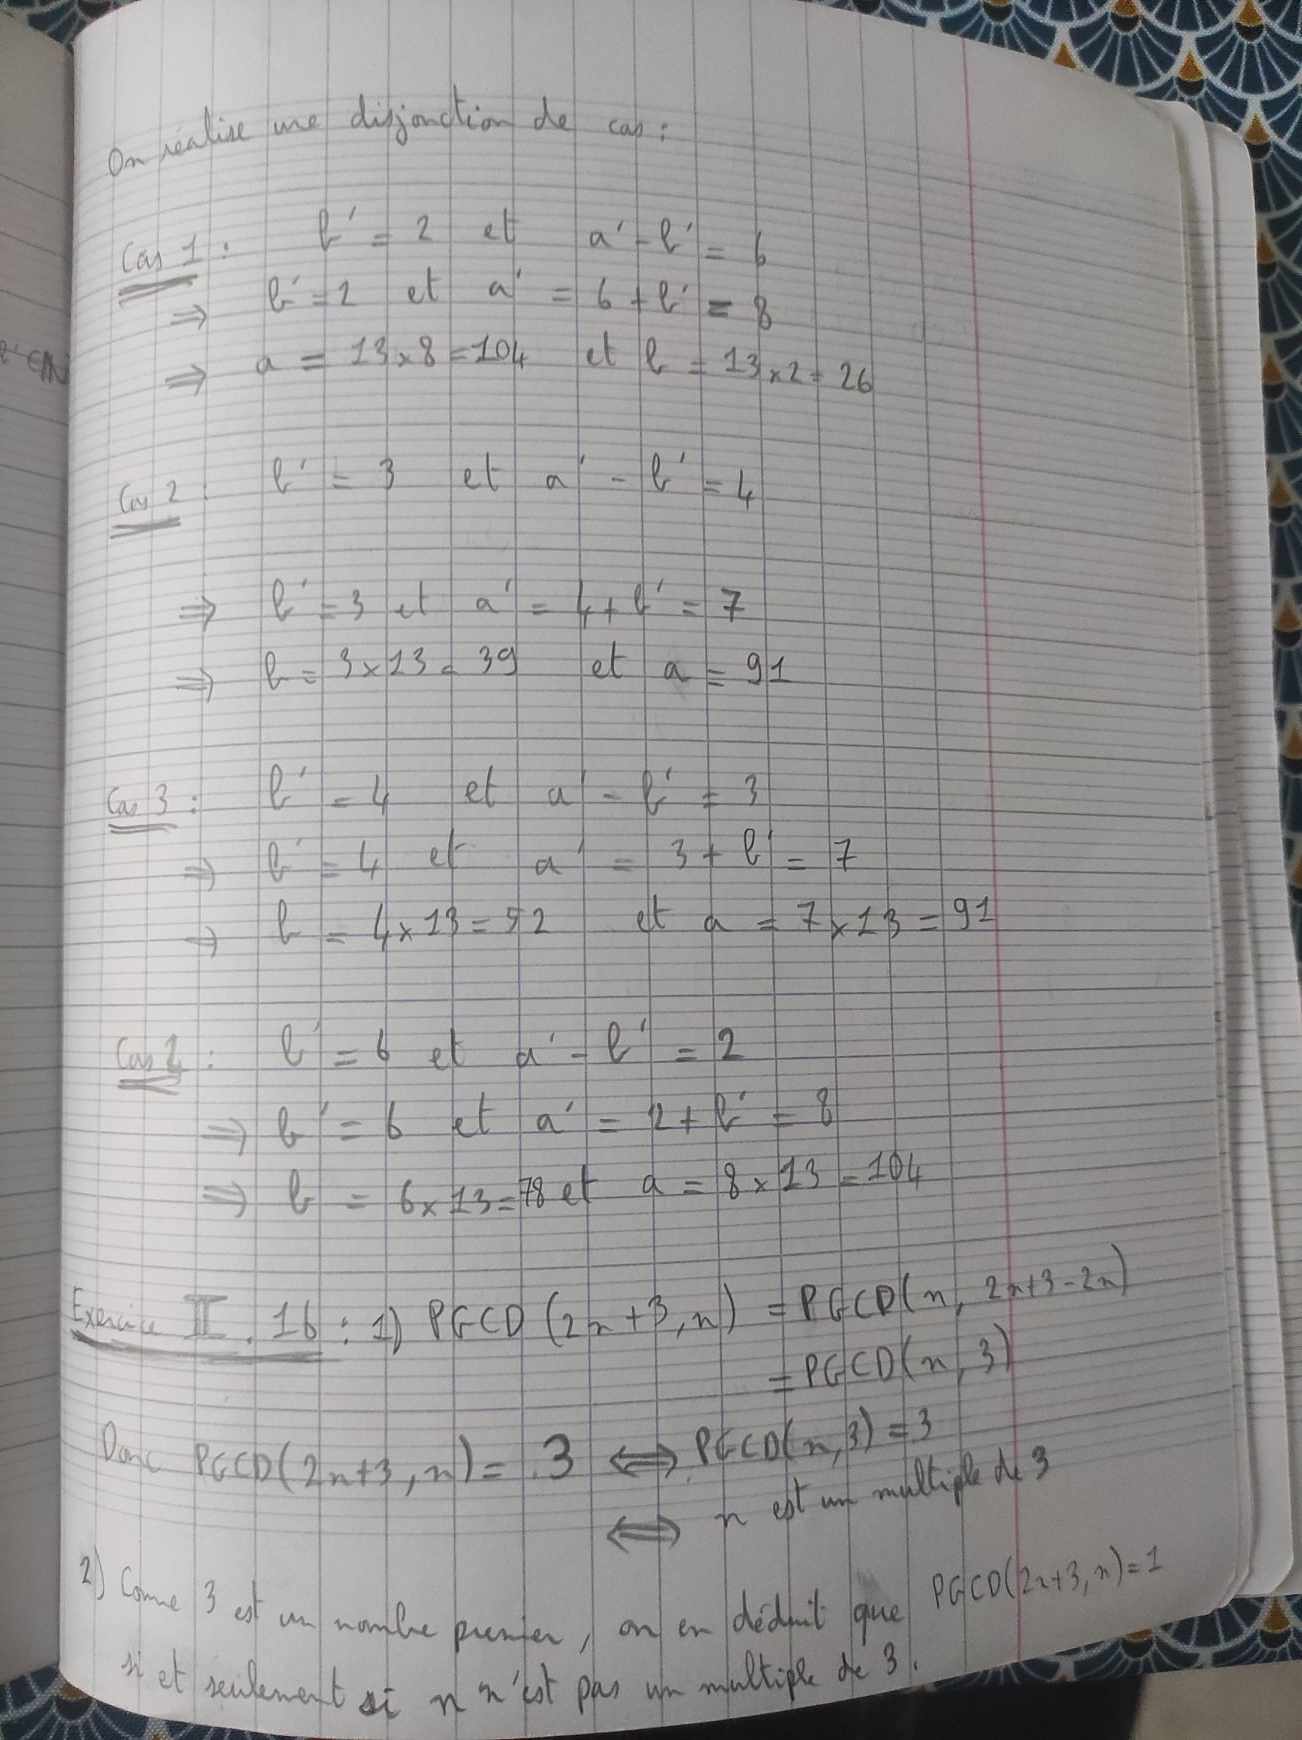 On réalise une disjonction de cas :
Cas 1 : b' = 2 et a' - b' = 6
⇒ b' = 2 et a' = 6 + b' = 8
⇒ a = 13 × 8 = 104 et b = 13 × 2 = 26
Cas 2 : b' = 3 et a' - b' = 4
⇒ b' = 3 et a' = 4 + b' = 7
⇒ b = 3 × 13 = 39 et a = 91
Cas 3 : b' = 4 et a' - b' = 3
⇒ b' = 4 et a' = 3 + b' = 7
→ b = 4 × 13 = 52 et a = 7 × 13 = 91
Cas : b' = 6 et a' - b' = 2
⇒ b' = 6 et a' = 2 + b' = 8
⇒ b = 6 × 13 = 78 et a = 8 × 13 = 104
Exercice II. 16 : 1) PGCD (2n+3, n) = PGCD(n, 2n+3-2n)
= PGCD(n, 3)
Donc PGCD(2n+3, n) = 3 ⟺ PGCD(n, 3) = 3
⟺ n est un multiple de 3
2) Comme 3 est un nombre premier, on en déduit que PGCD(2n+3, n) = 1
si et seulement si n n'est pas un multiple de 3.